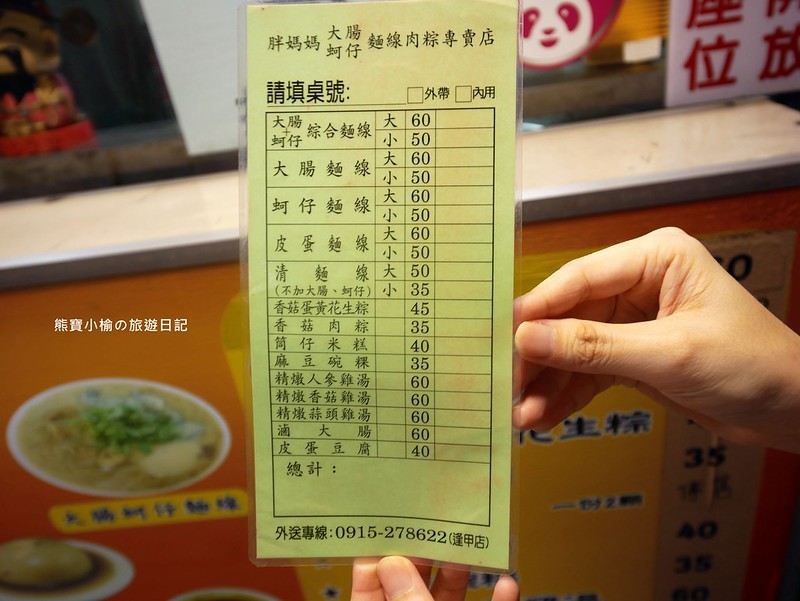 胖媽媽 大腸 蚵仔 麵線肉粽專賣店
請填桌號: □外帶 □內用
大腸+蚵仔 綜合麵線 大 60
小 50
大腸麵線 大 60
小 50
蚵仔麵線 大 60
小 50
皮蛋麵線 大 60
小 50
清麵線 大 50
(不加大腸、蚵仔) 小 35
香菇蛋黃花生粽 45
香菇肉粽 35
筒仔米糕 40
麻豆碗粿 35
精燉人參雞湯 60
精燉香菇雞湯 60
精燉蒜頭雞湯 60
滷大腸 60
皮蛋豆腐 40
總計:
外送專線:0915-278622(逢甲店)
熊寶小榆の旅遊日記
大腸蚵仔麵線
座位
開放
花生粽
35
一份2顆
40
35
60